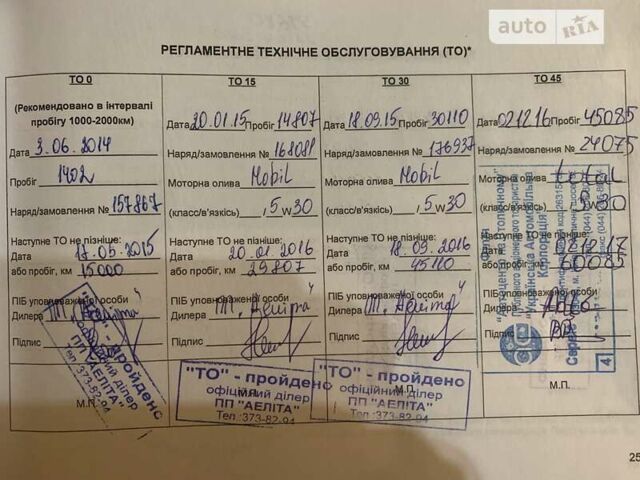 auto RIA
РЕГЛАМЕНТНЕ ТЕХНІЧНЕ ОБСЛУГОВУВАННЯ (ТО)*
ТО 0
(Рекомендовано в інтервалі
пробігу 1000-2000км)
Дата 3.06.2014
Пробіг 1402
Наряд/замовлення № 157867
Наступне ТО не пізніше:
Дата 18.05.2015
або пробіг, км 15000
ПІБ уповноваженої особи
Дилера
Підпис
М.П.
ТО 15
Дата 20.01.15 Пробіг 14807
Наряд/замовлення № 168088
Моторна олива Mobil
(класс/в'язкість) , 5 w 30
Наступне ТО не пізніше:
Дата 20.01.2016
або пробіг, км 29807
ПІБ уповноваженої особи
Дилера
Підпис
"ТО" - пройдено
офіційний ділер
ПП "АЕЛІТА"
Тел.:373-82-94
ТО 30
Дата 18.09.15 Пробіг 30110
Наряд/замовлення № 176937
Моторна олива Mobil
(класс/в'язкість) , 5 w 30
Наступне ТО не пізніше:
Дата 18.09.2016
або пробіг, км 45110
ПІБ уповноваженої особи
Дилера
Підпис
"ТО" - пройдено
офіційний ділер
ПП "АЕЛІТА"
Тел.:373-82-94
ТО 45
Дата 021216 Пробіг 45085
Наряд/замовлення № 24075
Моторна олива total
(класс/в'язкість) 5 w 30
Наступне ТО не пізніше:
Дата 021217
або пробіг, км 60085
ПІБ уповноваженої особи
Дилера
Підпис
М.П.
"ТО" - пройдено
ПП "АЕЛІТА"
Тел.:373-82-94
Українська Автомобільна
Корпорація"
4
25